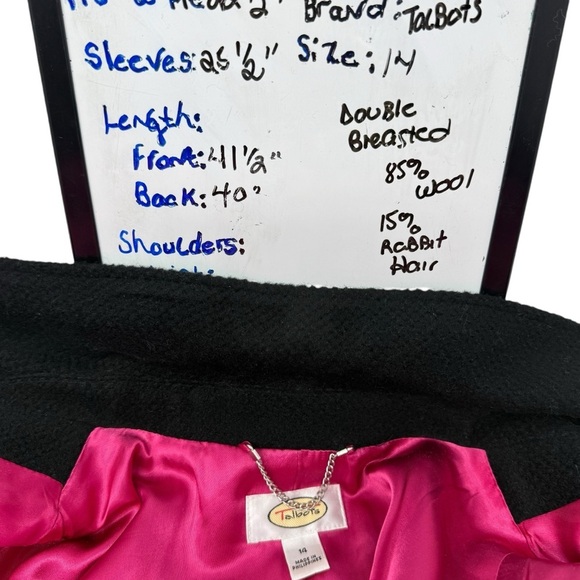 Brand: TalBots
Sleeves: 25 1/2" Size: 14
Length:
Front: 41 1/2"
Back: 40"
Shoulders:
Double
Breasted
85%
Wool
15%
RaBBit
Hair
Talbots
14
MADE IN
PHILIPPINES